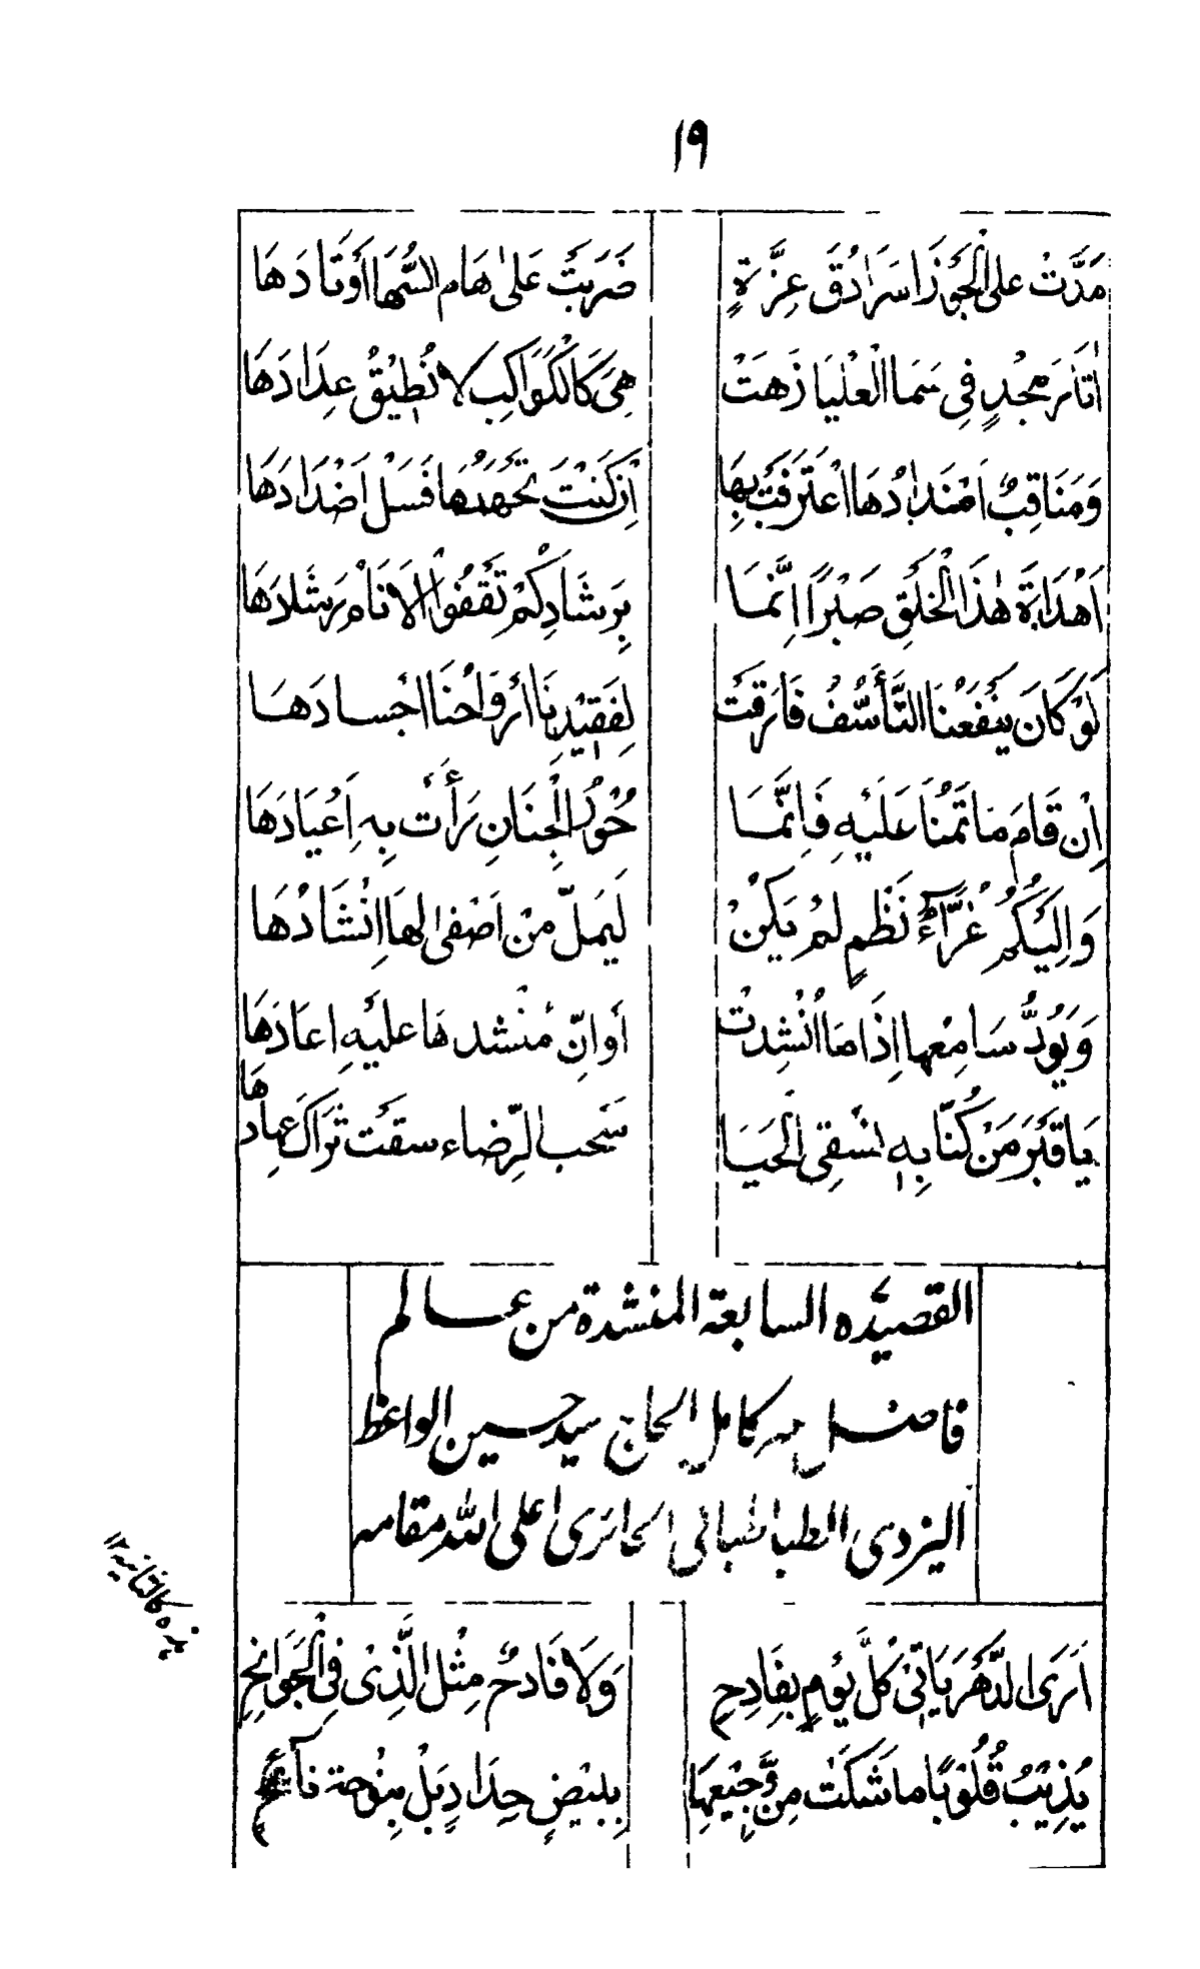 ١٩
مَدَّتْ على الْجَوْزَا سَرَادُقَ عِزَّةٍ ضَرَبَتْ عَلىٰ هَامِ السُّهَا أَوْتَادَهَا
اٰثَارَ مَجْدٍ فِي سَمَا الْعُلْيَا زَهَتْ هِيَ كَالْكَوَاكِبِ لَا نُطِيْقُ عِدَادَهَا
وَمَنَاقِبٌ اَضْدَادُهَا اعْتَرَفَتْ بِهَا اِنْ كُنْتَ تَجْهَدُهَا فَسَلْ اَضْدَادَهَا
اَهُدَاةَ هٰذَا الْخَلْقِ صَبْرًا اِنَّمَا بِرَشَادِكُمْ تَقْفُوا الْاَنَامُ رَشَادَهَا
لَوْ كَانَ يَنْفَعُنَا التَّأَسُّفُ فَارَقَتْ لِفَقِيْدِنَا أَرْوَاحُنَا أَجْسَادَهَا
اِنْ قَامَ مَاتَمُنَا عَلَيْهِ فَاِنَّمَا حُوْرُ الْجِنَانِ رَأَتْ بِهِ اَعْيَادَهَا
وَاِلَيْكُمُ غَرَّاءُ نَظْمٍ لَمْ يَكُنْ لَيَمَلّ مَنْ اَصْغىٰ لهَا اِنْشَادُهَا
وَيَوَدُّ سَامِعُها اِذَا مَا اُنْشِدَتْ أَوانّ مُنْشدهَا عليْهِ اعَادَهَا
يَا قَبْرَ مَنْ كُنَّا بِهِ نَسْقِى الْحَيَا سَحَب الرِّضَاء سقَتْ ثَرَاكَ عِهادهَا
القصيده السابعة المنشدة من عالم
فاضل كامل الحاج سيد حسين الواعظ
اليزدى الطباطبائى الحائرى اعلى الله مقامه
هذه كالثانية ١٢
اَرَى الدَّهْرَ يَاتِىْ كُلَّ يَوْمٍ بِفَادِحٍ وَلَا فَادحٌ مِثْلُ الَّذِىْ فِى الْجَوَانِحِ
يُذِيْبُ قُلُوْبًا ما شَكَتْ مِنْ وَجِيْعِهَا بِبِيْضٍ حِدَادٍ بَلْ بِنُوحة نائح